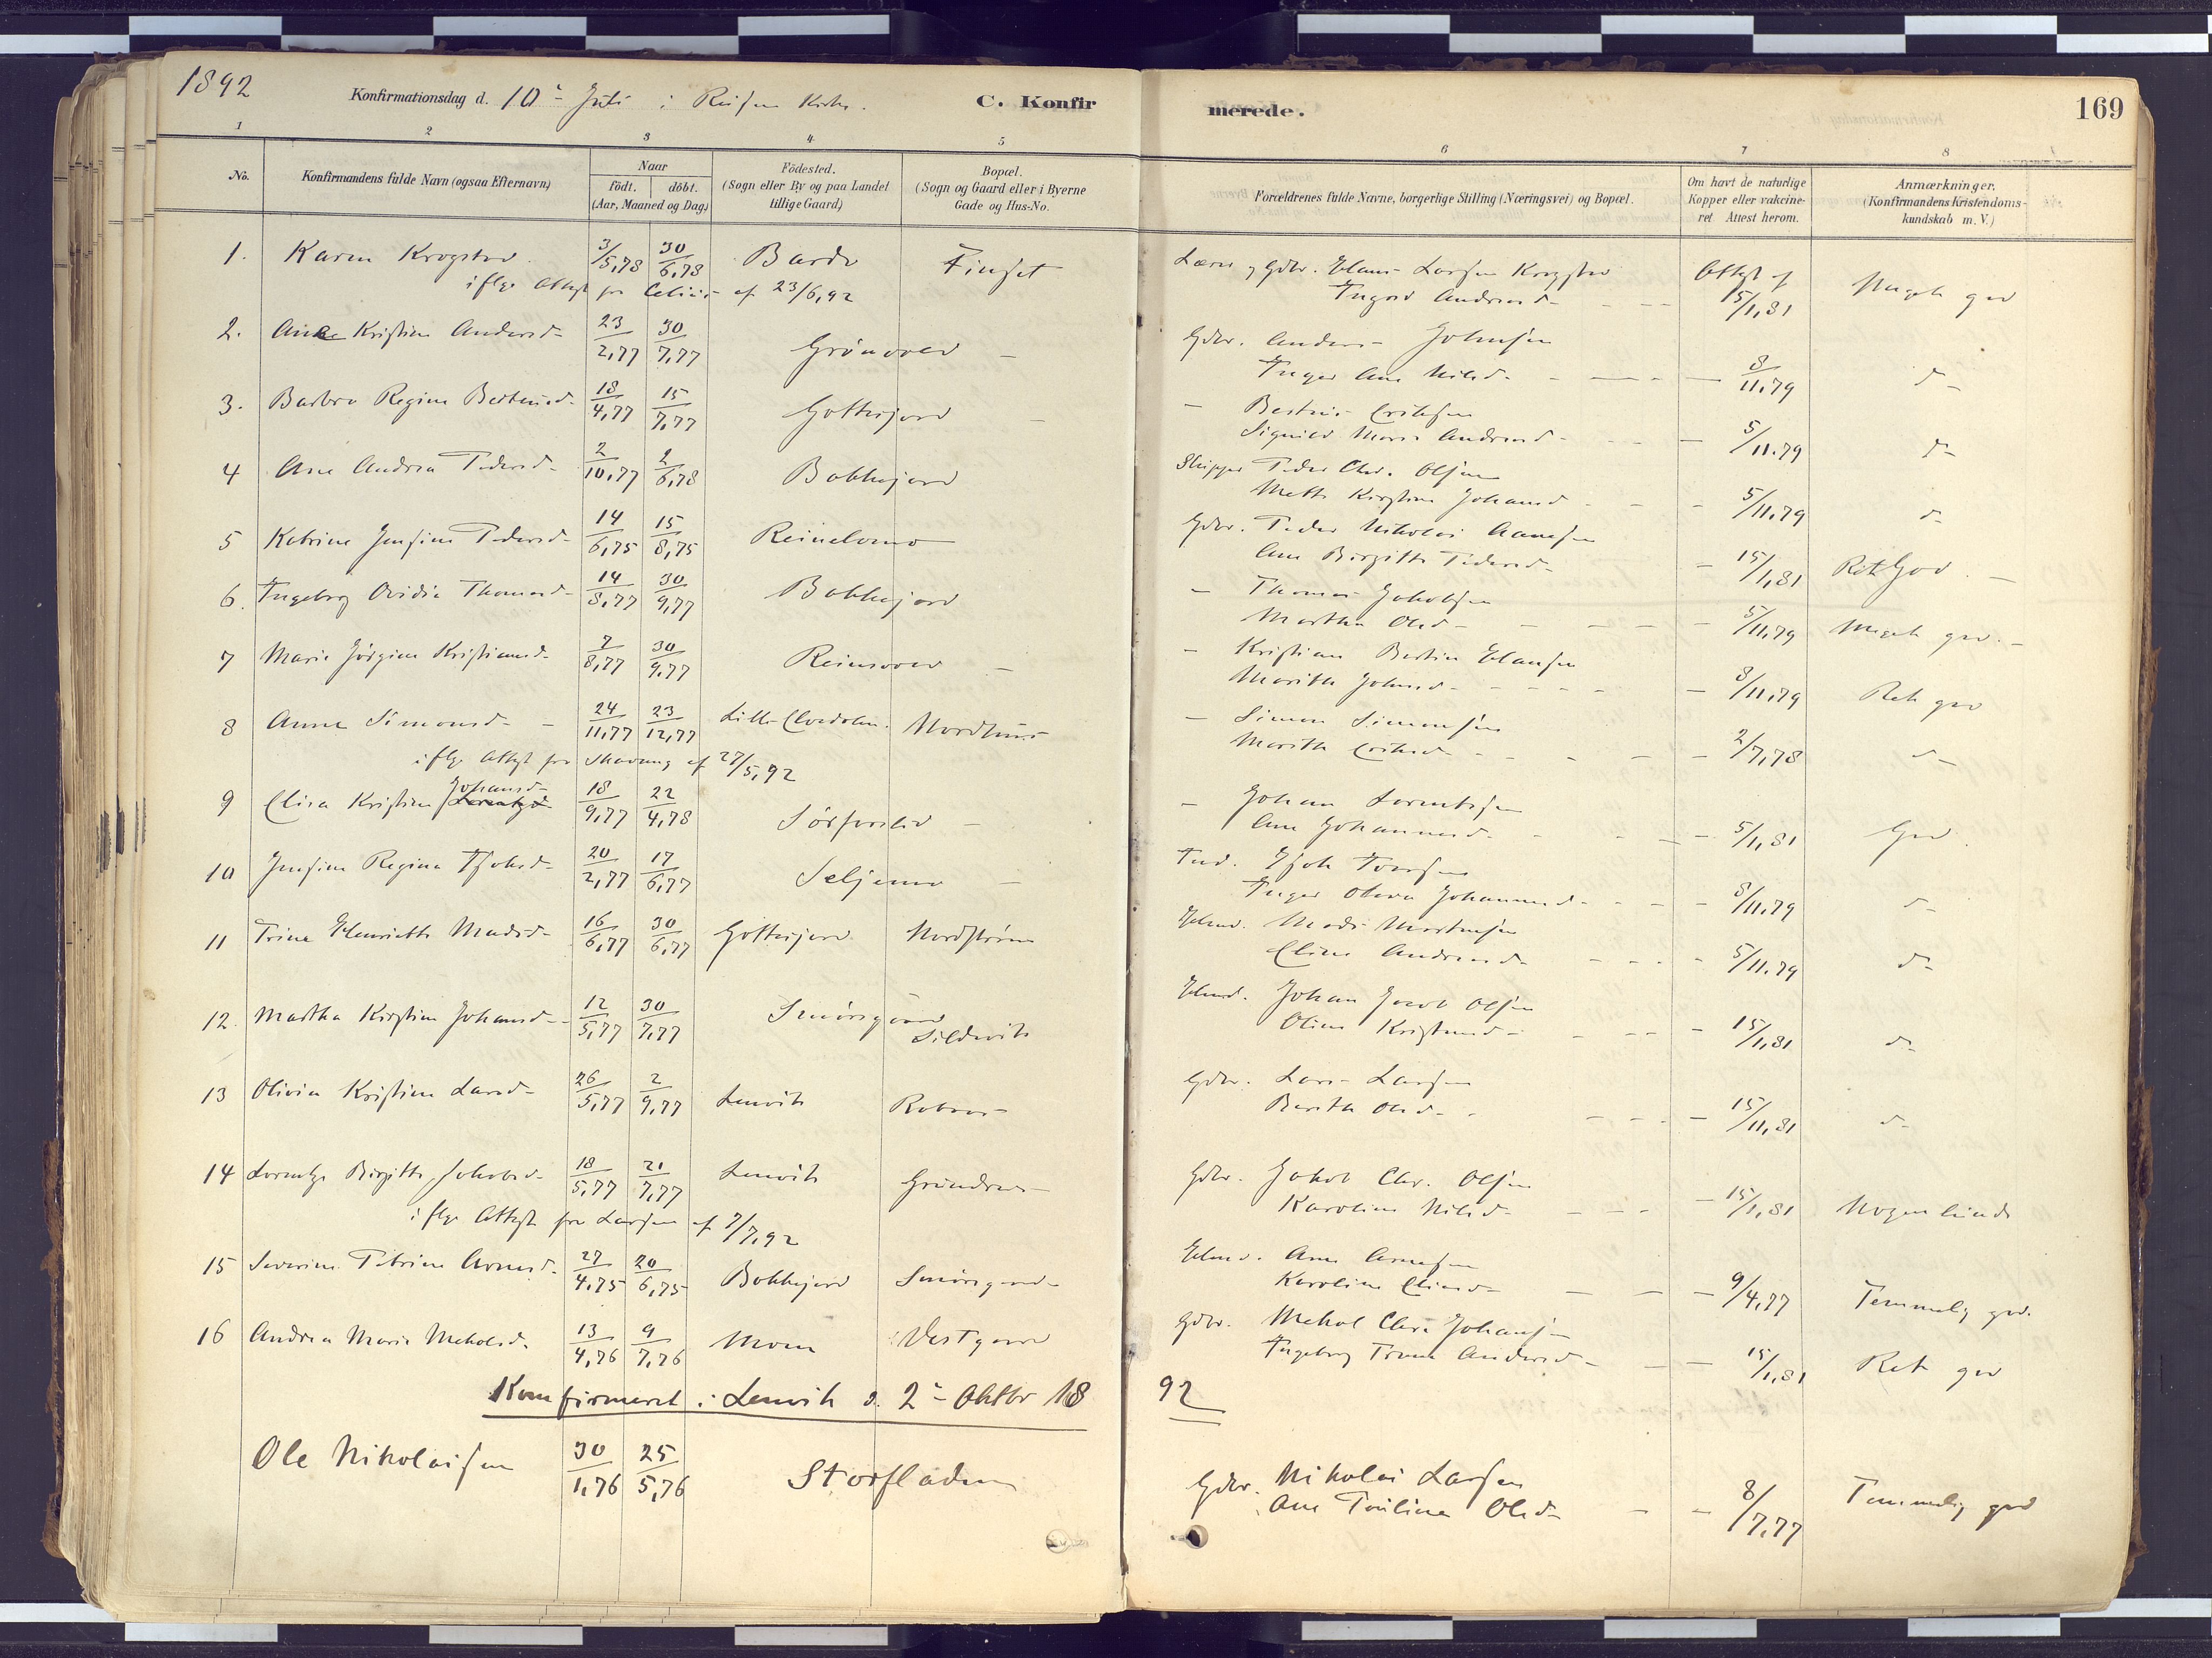 1892
Konfirmationsdag d. 10de Juli i Reisen Kirke.
C. Konfirmerede.
169
1 2 3 4 5 6 7 8
No.
Konfirmandens fulde Navn (ogsaa Efternavn)
Naar
födt. döbt.
(Aar, Maaned og Dag)
Födested.
(Sogn eller By og paa Landet
tillige Gaard)
Bopæl.
(Sogn og Gaard eller i Byerne
Gade og Hus-No.
Forældrenes fulde Navne, borgerlige Stilling (Næringsvei) og Bopæl.
Om havt de naturlige
Kopper eller vakcine-
ret Attest herom.
Anmærkninger.
(Konfirmandens Kristendoms-
kundskab m. V.)
1. Karen Krogstad 3/5,78 30/6,78 Bardo Finset Lærer, Gdbr. Claus Larsen Krogstad Attest af 15/1,81 Meget god
Ingord Andersd -
iflge Attest fra af 23/6,92
2. Ane Kristine Andersd - 23/2,77 30/7,77 Grönvold - Gdbr. Anders Johnsen
Inger Ane Nilsd - - 8/11.79 d -
3. Barbro Regine Bertinsd - 18/4,77 15/7,77 Gottesjord - - Bertin Eriksen
Signild Marie Andersd - - 5/11.79 d -
4 Ane Andrea Pedersd - 2/10,77 2/6,78 Bakkejord Skipper Peder Chr. Olsen
Mette Kirstine Johansd - 5/11.79 d -
5 Katrine Jensine Pedersd - 14/6,75 15/8,75 Reinelvmo Gdbr. Peder Nikolai Aanesen
Ane Birgitte Pedersd - - 15/1,81 Ret God. -
6. Ingeborg Ovidia Thomasd - 14/8,77 30/9,77 Bakkejord - Thomas Jakobsen
Martha Olsd - - 5/11,79 Meget god. -
7 Marie Jörgine Kristiansd - 7/8,77 30/9,77 Reinsvold - - Kristian Bertin Clausen
Marith Johnsd - - 8/11,79 Ret god
8 Anne Simonsd - 24/11,77 23/12,77 Nordhus - Simon Simonsen
Marith Eriksd - - 2/7,78 d -
iflge Attest fra af 27/5,92
9 Elisa Kristine Johansd - 18/9,77 22/4,78 Sörfurslid - - Johan Lorentsen
Ane Johannesd - - 5/1,81 God.
10 Jensine Regina Isaksd - 20/2,77 17/6,77 Seljemo - Ind. Isak Iversen
Inger Olava Johannesd - - 8/11,79 d -
11 Trine Henriette Madsd - 16/6,77 30/6,77 Gottesjord Nordström Hmd. Mads Mortensen
Eline Andersd - - 5/11.79 d -
12. Martha Kirstine Johansd - 12/5,77 30/7,77 Smörsgaard Hmd. Johan Jacob Olsen
Sildvik Oline Kristensd - - 15/1,81 d -
13 Olivia Kristine Larsd - 26/5,77 2/9,77 Lenvik Gdbr. Lars Larsen
Berith Olsd - - 15/11,81 d -
14 Lorentze Birgitte Jakobsd - 18/5,77 21/7,77 Lenvik Grundnes - Gdbr. Jakob Chr. Olsen
Karoline Nilsd - - 15/1,81 Nogenlunde
iflge Attest fra Larsen af 7/7,92
15 Severine Petrine Arnesd - 27/4,75 20/6,75 Bakkejord Smörsgaard Hmd. Arne Arnesen
Karoline Eliasd - - 9/4,77 Temmelig god.
16 Andrea Marie Mekalsd - 13/4,76 9/7,76 Moen Vestgaard Gdbr. Mekal Chr. Johansen
Ingeborg Trine Andersd - - 15/1,81 Ret god
Konfirmeret i Lenvik d. 2den Oktbr 1892
Ole Nikolaisen 30/1,76 25/5,76 Storfladen Gdbr. Nikolai Larsen
Ane Paulina Olsd - - 8/7,77 Temmelig god